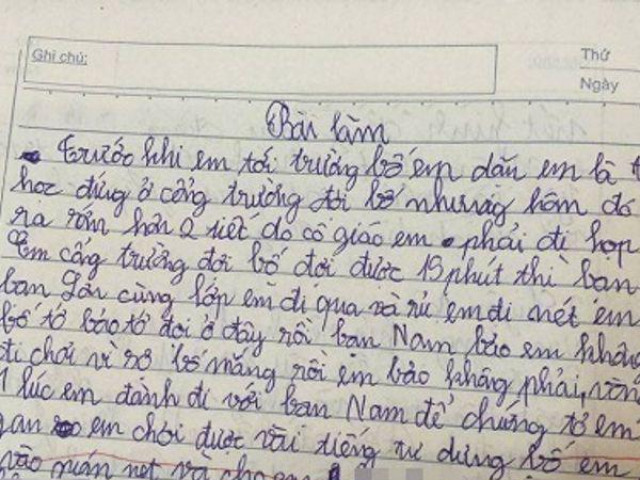 Ghi chú:
Thứ
Ngày
Bài làm
Trước khi em tới trường bố em dăn em là
học đứng ở cổng trường đợi bố nhưng hôm đó
ra sớm hơn 2 tiết do cô giáo em phải đi họp
Em cổng trường đợi bố đợi được 15 phút thì bạn
bạn cùng lớp em đi qua và rủ em đi nét em
bố tớ bảo tớ đợi ở đây rồi bạn Nam bảo em không
đi chơi vì sợ bố mắng rồi em bảo không phải,
1 lúc em đành đi với bạn Nam để chứng tỏ em
gan em chơi được vài tiếng tự dưng bố em
vào quán net và cho em 1